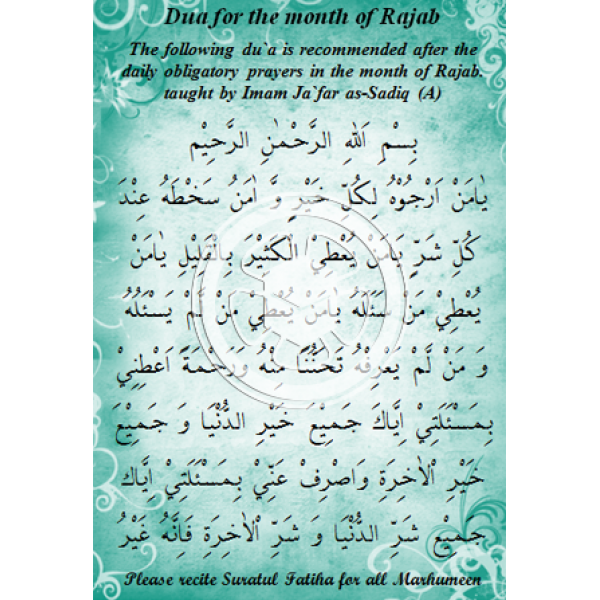 Dua for the month of Rajab
The following du`a is recommended after the
daily obligatory prayers in the month of Rajab.
taught by Imam Ja`far as-Sadiq (A)
بِسْمِ اَللهِ الرَّحْمٰنِ الرَّحِيْمِ
يٰامَنْ اَرْجُوْهُ لِكُلِّ خَيْرٍ وَّ اٰمَنُ سَخَطَهُ عِنْدَ
كُلِّ شَرٍّ يَامَنْ يُعْطِيْ الْكَثِيْرَ بِالْقَلِيْلِ يٰامَنْ
يُعْطِيْ مَنْ سَئَلَهُ يٰامَنْ يُعْطِيْ مَنْ لَّمْ يَسْئَلْهُ
وَ مَنْ لَّمْ يَعْرِفْهُ تَحَنُّنًا مِنْهُ وَرَحْمَةً اَعْطِنِيْ
بِمَسْئَلَتِيْ اِيَّاكَ جَمِيْعَ خَيْرِ الدُّنْيَا وَ جَمِيْعَ
خَيْرِ الْاٰخِرَةِ وَاصْرِفْ عَنِّيْ بِمَسْئَلَتِيْ اِيَّاك
جَمِيْعَ شَرِّ الدُّنْيَا وَ شَرِّ الْاٰخِرَةِ فَاِنَّهُ غَيْرُ
Please recite Suratul Fatiha for all Marhumeen